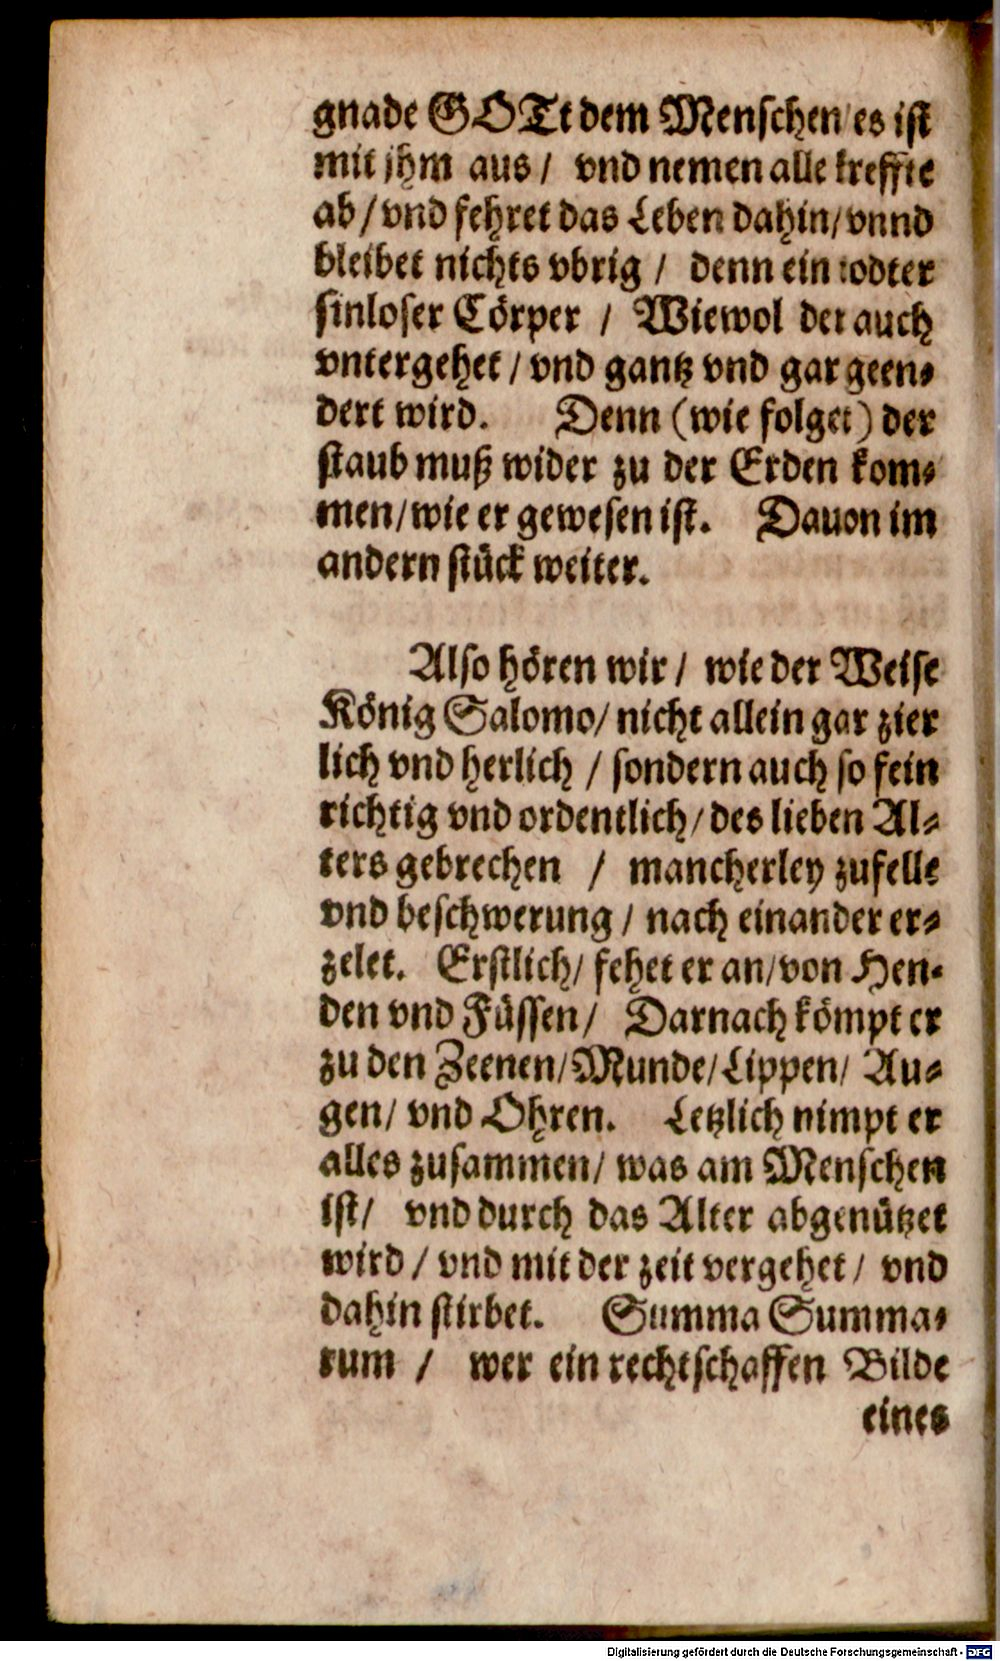 gnade GOTt dem Menschen es ist
mit jhm aus / vnd nemen alle kreffte
ab / vnd fehret das Leben dahin / vnnd
bleibet nichts vbrig / denn ein todter
sinloser Cörper / Wiewol der auch
vntergehet / vnd gantz vnd gar geen-
dert wird. Denn (wie folget) der
staub muß wider zu der Erden kom-
men / wie er gewesen ist. Dauon im
andern stück weiter.
Also hören wir / wie der Weise
König Salomo / nicht allein gar zier
lich vnd herlich / sondern auch so fein
richtig vnd ordentlich / des lieben Al-
ters gebrechen / mancherley zufelle
vnd beschwerung / nach einander er-
zelet. Erstlich / fehet er an / von Hen-
den vnd Füssen / Darnach kömpt er
zu den Zeenen / Munde / Lippen / Au-
gen / vnd Ohren. Letzlich nimpt er
alles zusammen / was am Menschen
ist / vnd durch das Alter abgenützet
wird / vnd mit der zeit vergehet / vnd
dahin stirbet. Summa Summa-
rum / wer ein rechtschaffen Bilde
eines
Digitalisierung gefördert durch die Deutsche Forschungsgemeinschaft - DFG